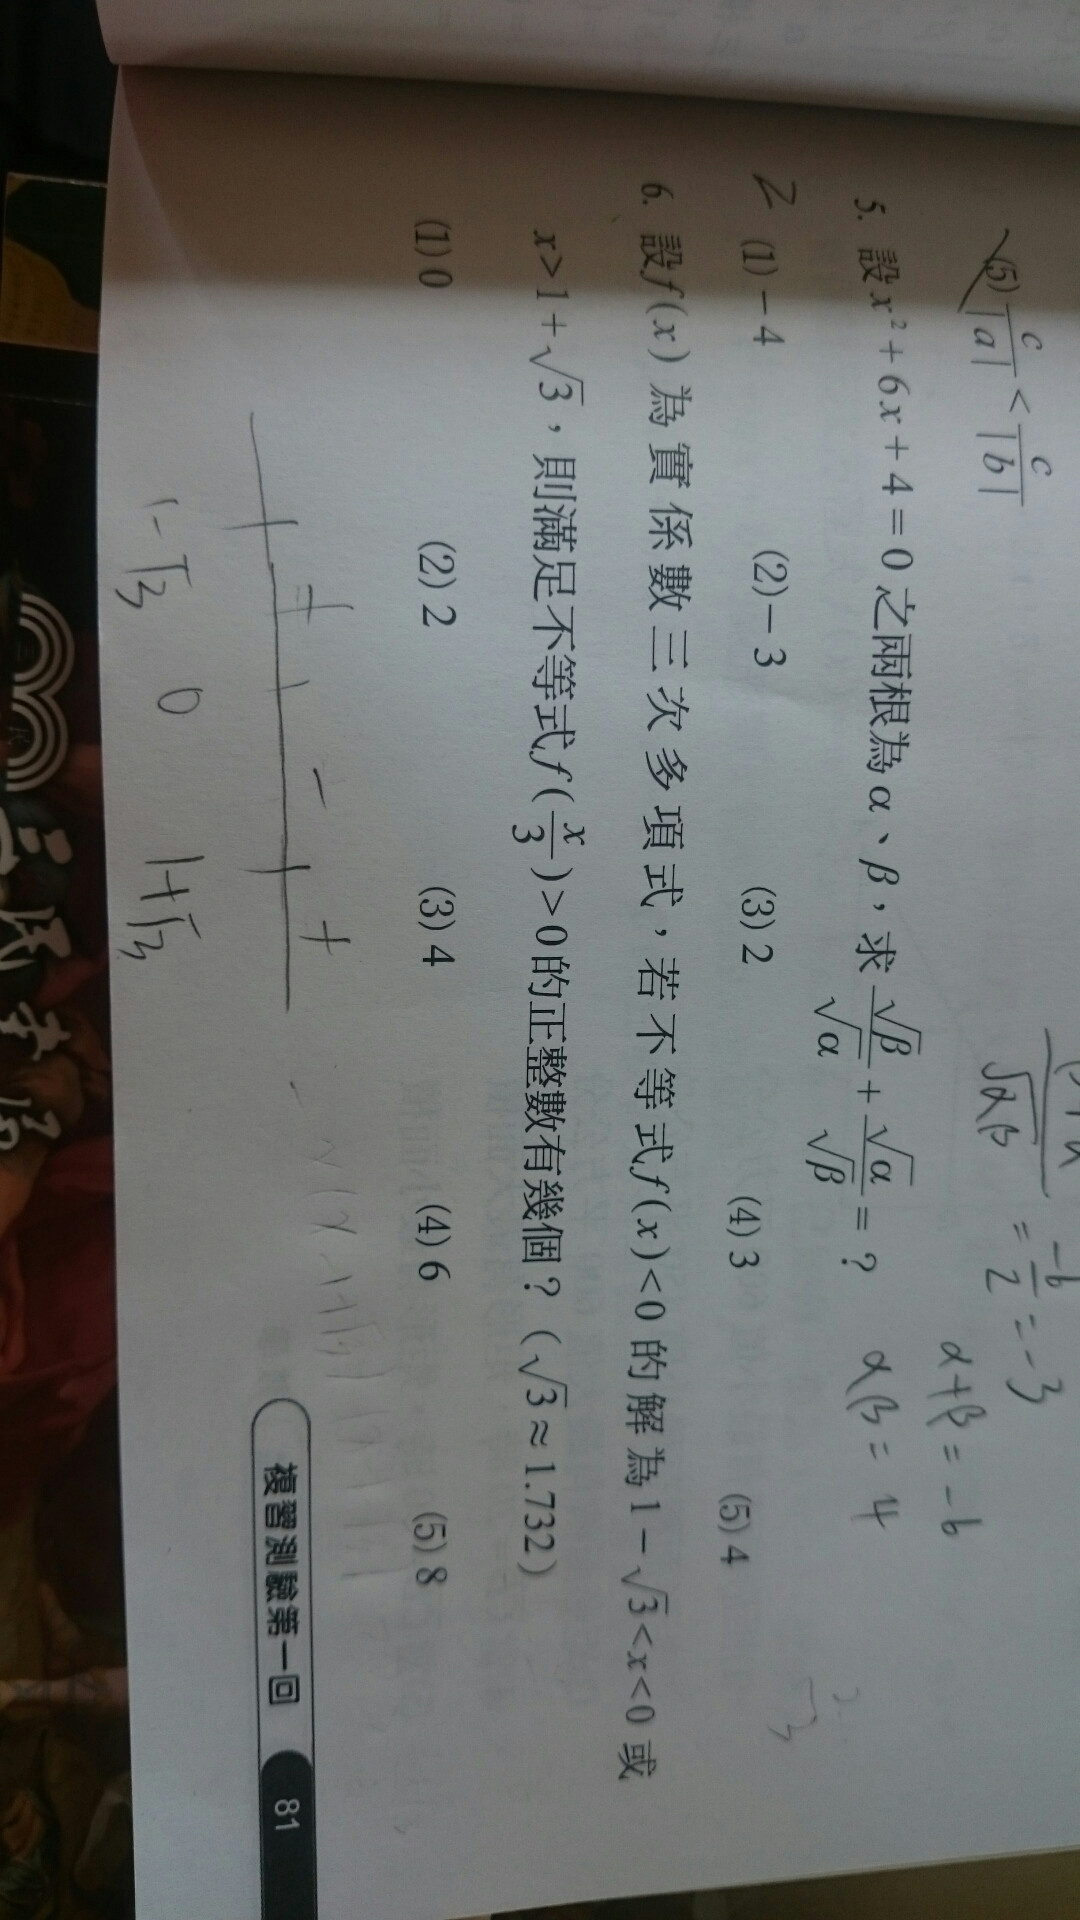 (5) c/|a| < c/|b|
√αβ = -6/2 = -3
α+β = -6
αβ = 4
5. 設x²+6x+4=0之兩根為α、β，求√β/√α+√α/√β=？
2 (1)-4 (2)-3 (3)2 (4)3 (5)4
6. 設f(x)為實係數三次多項式，若不等式f(x)<0的解為1-√3<x<0或
x>1+√3，則滿足不等式f(x/3)>0的正整數有幾個？(√3≈1.732)
(1)0 (2)2 (3)4 (4)6 (5)8
- +
1-√3 0 1+√3
複習測驗第一回 81